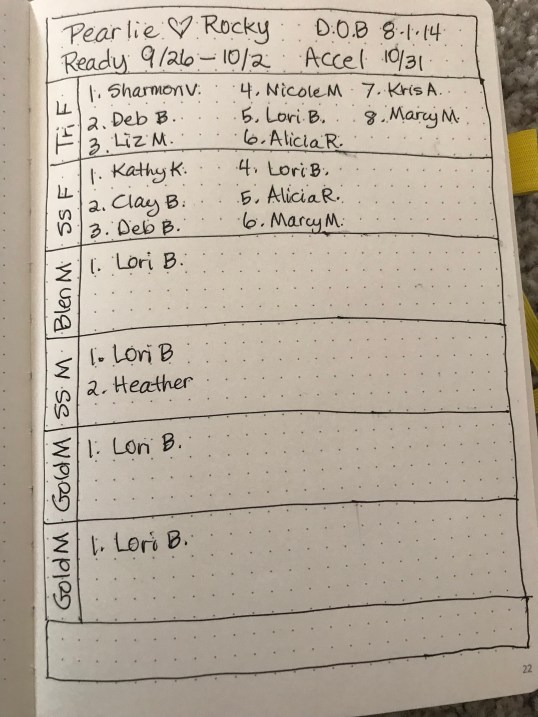 Pearlie ♡ Rocky D.O.B 8.1.14
Ready 9/26-10/2 Accel 10/31
Tri F
1. Sharmon V. 4. Nicole M 7. Kris A.
2. Deb B. 5. Lori B. 8. Marcy M.
3. Liz M. 6. Alicia R.
SS F
1. Kathy K. 4. Lori B.
2. Clay B. 5. Alicia R.
3. Deb B. 6. Marcy M.
Blen M
1. Lori B.
SS M
1. Lori B
2. Heather
Gold M
1. Lori B.
Gold M
1. Lori B.
22